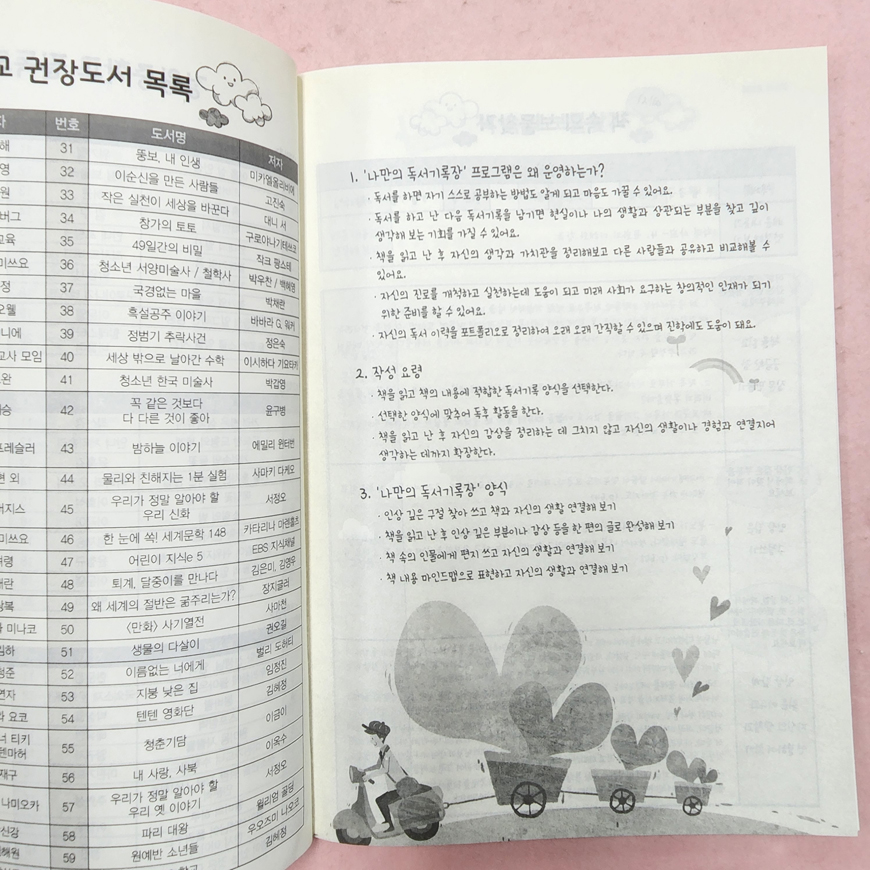 고 권장도서 목록
자 번호 도서명 저자
해 31 뚱보, 내 인생 미카엘올리비에
영 32 이순신을 만든 사람들 고진숙
원 33 작은 실천이 세상을 바꾼다 대니 서
버그 34 창가의 토토 구로야나기테쓰코
교육 35 49일간의 비밀 작크 팡스테
미쓰요 36 청소년 서양미술사 / 철학사 박우찬 / 백혜영
정 37 국경없는 마을 박채란
오웰 38 흑설공주 이야기 바바라 G. 워커
니에 39 정범기 추락사건 정은숙
교사 모임 40 세상 밖으로 날아간 수학 이시하다 기요타키
완 41 청소년 한국 미술사 박갑영
승 42 꼭 같은 것보다
다 다른 것이 좋아 윤구병
프레슬러 43 밤하늘 이야기 에밀리 윈터번
외 44 물리와 친해지는 1분 실험 사마키 다케오
지스 45 우리가 정말 알아야 할
우리 신화 서정오
미쓰요 46 한 눈에 쏙! 세계문학 148 카타리나 마렌홀츠
려령 47 어린이 지식e 5 EBS 지식채널
란 48 퇴계, 달중이를 만나다 김은미, 김영우
복 49 왜 세계의 절반은 굶주리는가? 장지글러
미나코 50 〈만화〉 사기열전 사마천
하 51 생물의 다살이 권오길
정준 52 이름없는 너에게 벌리 도허티
연자 53 지붕 낮은 집 임정진
요코 54 텐텐 영화단 김혜정
너 티키
텐마허 55 청춘기담 이금이
재구 56 내 사랑, 사북 이옥수
나미오카 57 우리가 정말 알아야 할
우리 옛 이야기 서정오
신강 58 파리 대왕 윌리엄 골딩
해원 59 원예반 소년들 우오즈미 나오코
김혜정
1. '나만의 독서기록장' 프로그램은 왜 운영하는가?
· 독서를 하면 자기 스스로 공부하는 방법도 알게 되고 마음도 가꿀 수 있어요.
· 독서를 하고 난 다음 독서기록을 남기면 현실이나 나의 생활과 상관되는 부분을 찾고 깊이
생각해 보는 기회를 가질 수 있어요.
· 책을 읽고 난 후 자신의 생각과 가치관을 정리해보고 다른 사람들과 공유하고 비교해볼 수
있어요.
· 자신의 진로를 개척하고 실천하는데 도움이 되고 미래 사회가 요구하는 창의적인 인재가 되기
위한 준비를 할 수 있어요.
· 자신의 독서 이력을 포트폴리오로 정리하여 오래 오래 간직할 수 있으며 진학에도 도움이 돼요.
2. 작성 요령
· 책을 읽고 책의 내용에 적합한 독서기록 양식을 선택한다.
· 선택한 양식에 맞추어 독후 활동을 한다.
· 책을 읽고 난 후 자신의 감상을 정리하는 데 그치지 않고 자신의 생활이나 경험과 연결지어
생각하는 데까지 확장한다.
3. '나만의 독서기록장' 양식
· 인상 깊은 구절 찾아 쓰고 책과 자신의 생활 연결해 보기
· 책을 읽고 난 후 인상 깊은 부분이나 감상 등을 한 편의 글로 완성해 보기
· 책 속의 인물에게 편지 쓰고 자신의 생활과 연결해 보기
· 책 내용 마인드맵으로 표현하고 자신의 생활과 연결해 보기